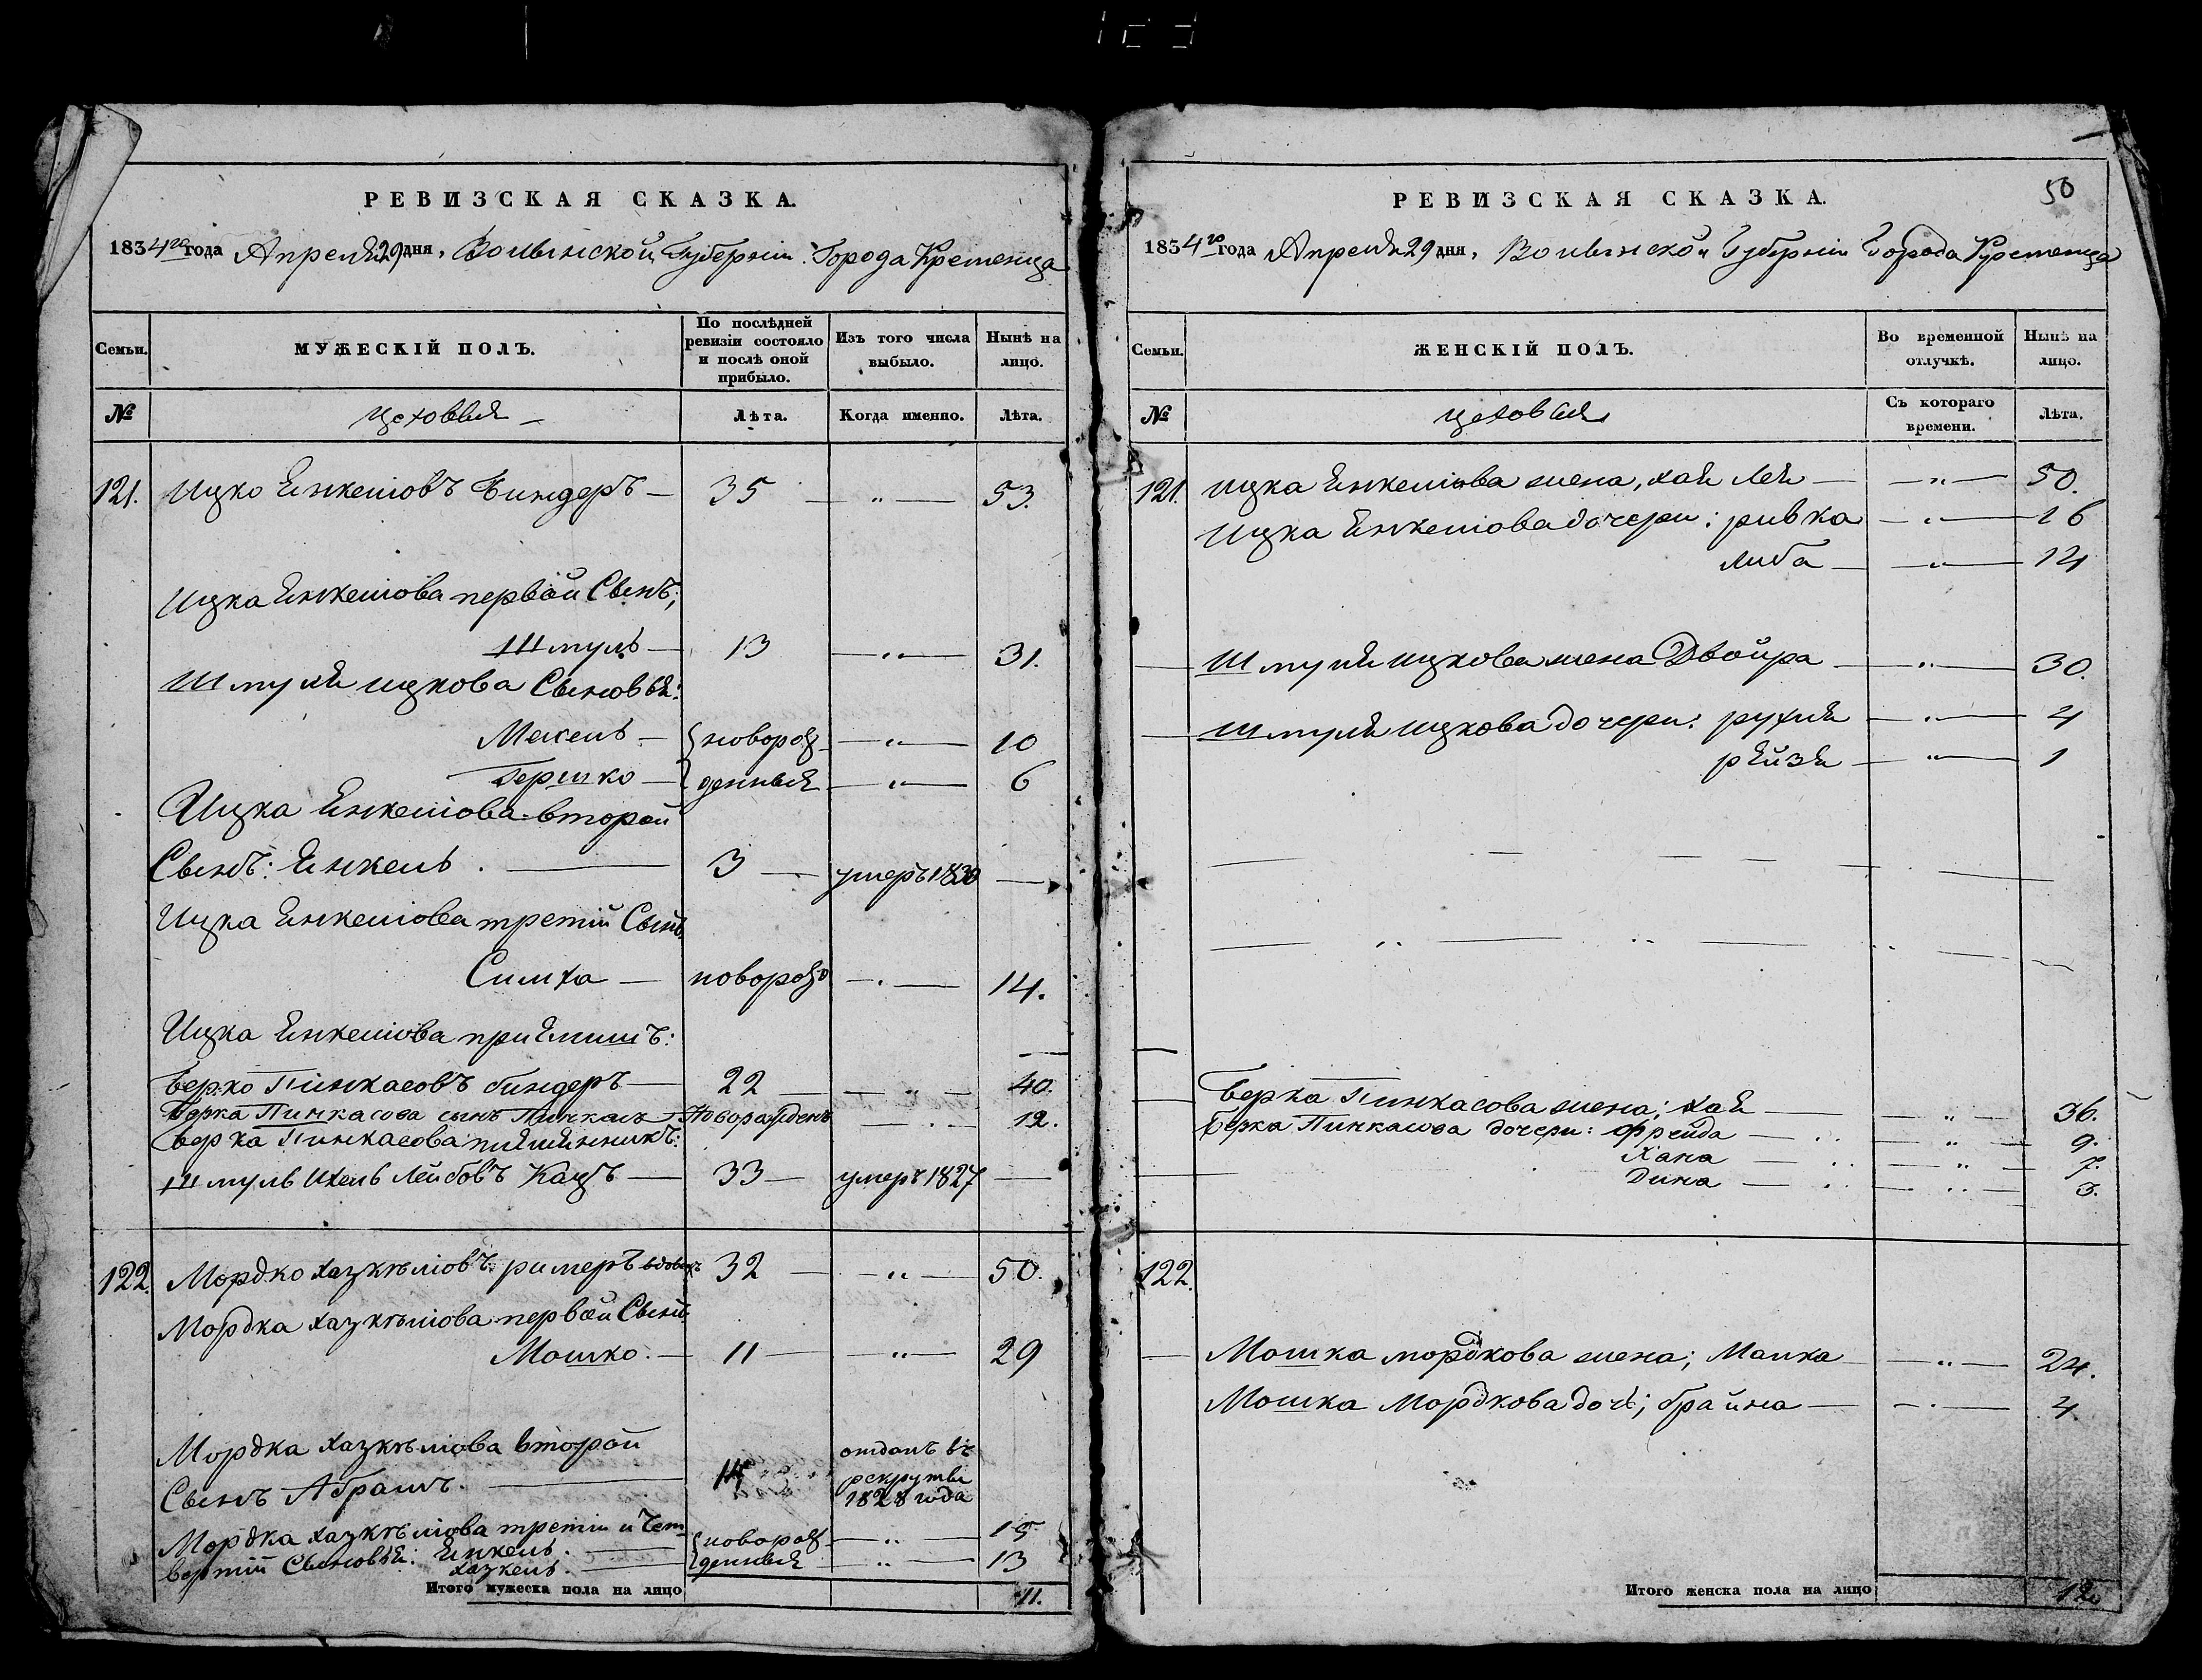 РЕВИЗСКАЯ СКАЗКА.
1834го года Апреля 29 дня, Волынской Губерніи Города Кременца
Семьи. МУЖЕСКІЙ ПОЛЪ. По послѣдней ревизіи состояло и послѣ оной прибыло. Изъ того числа выбыло. Нынѣ на лицо.
№ цеховыя Лѣта. Когда именно. Лѣта.
121. Ицко Янкеліовъ Биндеръ — 35 — „ — 53.
Ицка Янкеліова первой Сынъ;
Шмуль — 13 — „ — 31.
Шмуля ицкова Сыновья:
Мекель — новорож- — „ — 10
Гершко — денныя — „ — 6
Ицка Янкеліова второй
Сынъ: Янкель. — 3 — умеръ 1830 —
Ицка Янкеліова третій Сынъ
Симха — новорожд — „ — 14.
Ицка Янкеліова приЯмышъ:
Берко Пинкасовъ биндеръ — 22 — „ — 40.
Берка Пинкасова сынъ Пинкасъ — Новорожденъ — „ — 12.
Берка Пинкасова плЯмЯнникъ:
Шмуль Ихель Лейбовъ Кацъ — 33 — умеръ 1827 —
122. Мордко хазкѣліовъ римеръ вдовецъ 32 — „ — 50.
Мордка хазкѣліова первой Сынъ
Мошко. — 11 — „ — 29
Мордка хазкѣліова второй
Сынъ Абрамъ. — отданъ въ рекруты 1828 года
Мордка хазкѣліова третій и чет-
вертій Сыновья: Янкель. — новорож- — „ — 15
хазкель. — денныя — „ — 13
Итого мужеска пола на лицо 11.
50
РЕВИЗСКАЯ СКАЗКА.
1834го года Апреля 29 дня, Волынской Губерніи Города Кременца
Семьи. ЖЕНСКІЙ ПОЛЪ. Во временной отлучкѣ. Нынѣ на лицо.
№ цеховыя Съ котораго времени. Лѣта.
121. ицка Янкеліова жена, хая Лея — „ — 50.
Ицка Янкеліова дочери: ривка — „ — 16
либа — „ — 14
Шмуля ицкова жена Двойра — „ — 30.
Шмуля ицкова дочери: рухля — „ — 4
рЯйзя — „ — 1
Берка Пинкасова жена; хая — „ — 36.
Берка Пинкасова дочери: Фрейда — „ — 9.
Хана — „ — 7.
Дина — „ — 3.
122.
Мошка мордкова жена; Малка — „ — 24.
Мошка Мордкова дочь; брайна — „ — 4.
Итого женска пола на лицо 12.